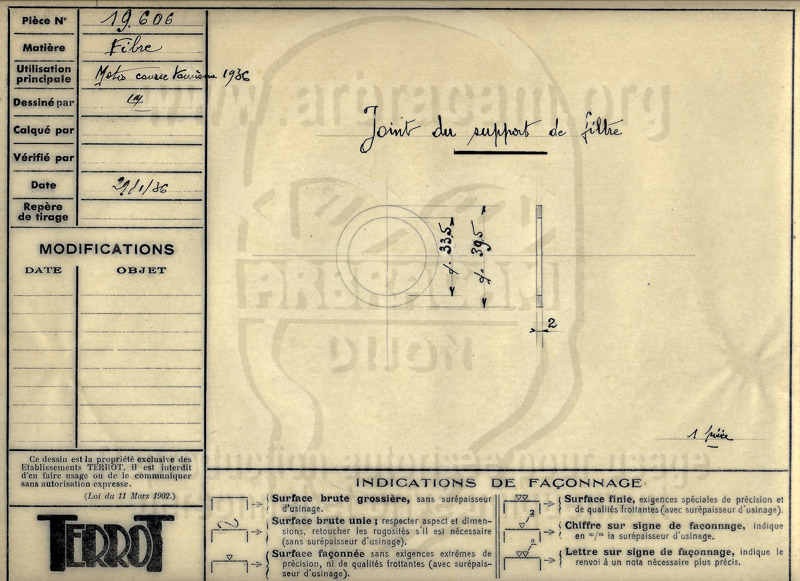 Pièce N° 19.606
Matière Fibre
Utilisation principale Moto course tourisme 1936
Dessiné par
Calqué par
Vérifié par
Date 29/1/36
Repère de tirage
MODIFICATIONS
DATE OBJET
Ce dessin est la propriété exclusive des
Etablissements TERROT, il est interdit
d'en faire usage ou de le communiquer
sans autorisation expresse.
(Loi du 11 Mars 1902.)
TERROT
www.arbracam.org
Joint du support de filtre
d. 33,5
d. 39,5
2
ARBRACAM
DIJON
1 pièce
INDICATIONS DE FAÇONNAGE
Surface brute grossière, sans surépaisseur
d'usinage.
Surface brute unie ; respecter aspect et dimen-
sions, retoucher les rugosités s'il est nécessaire
(sans surépaisseur d'usinage).
Surface façonnée sans exigences extrêmes de
précision, ni de qualités frottantes (avec surépais-
seur d'usinage).
Surface finie, exigences spéciales de précision et
de qualités frottantes (avec surépaisseur d'usinage).
2
Chiffre sur signe de façonnage, indique
en m/m la surépaisseur d'usinage.
a
Lettre sur signe de façonnage, indique le
renvoi à un nota nécessaire plus précis.